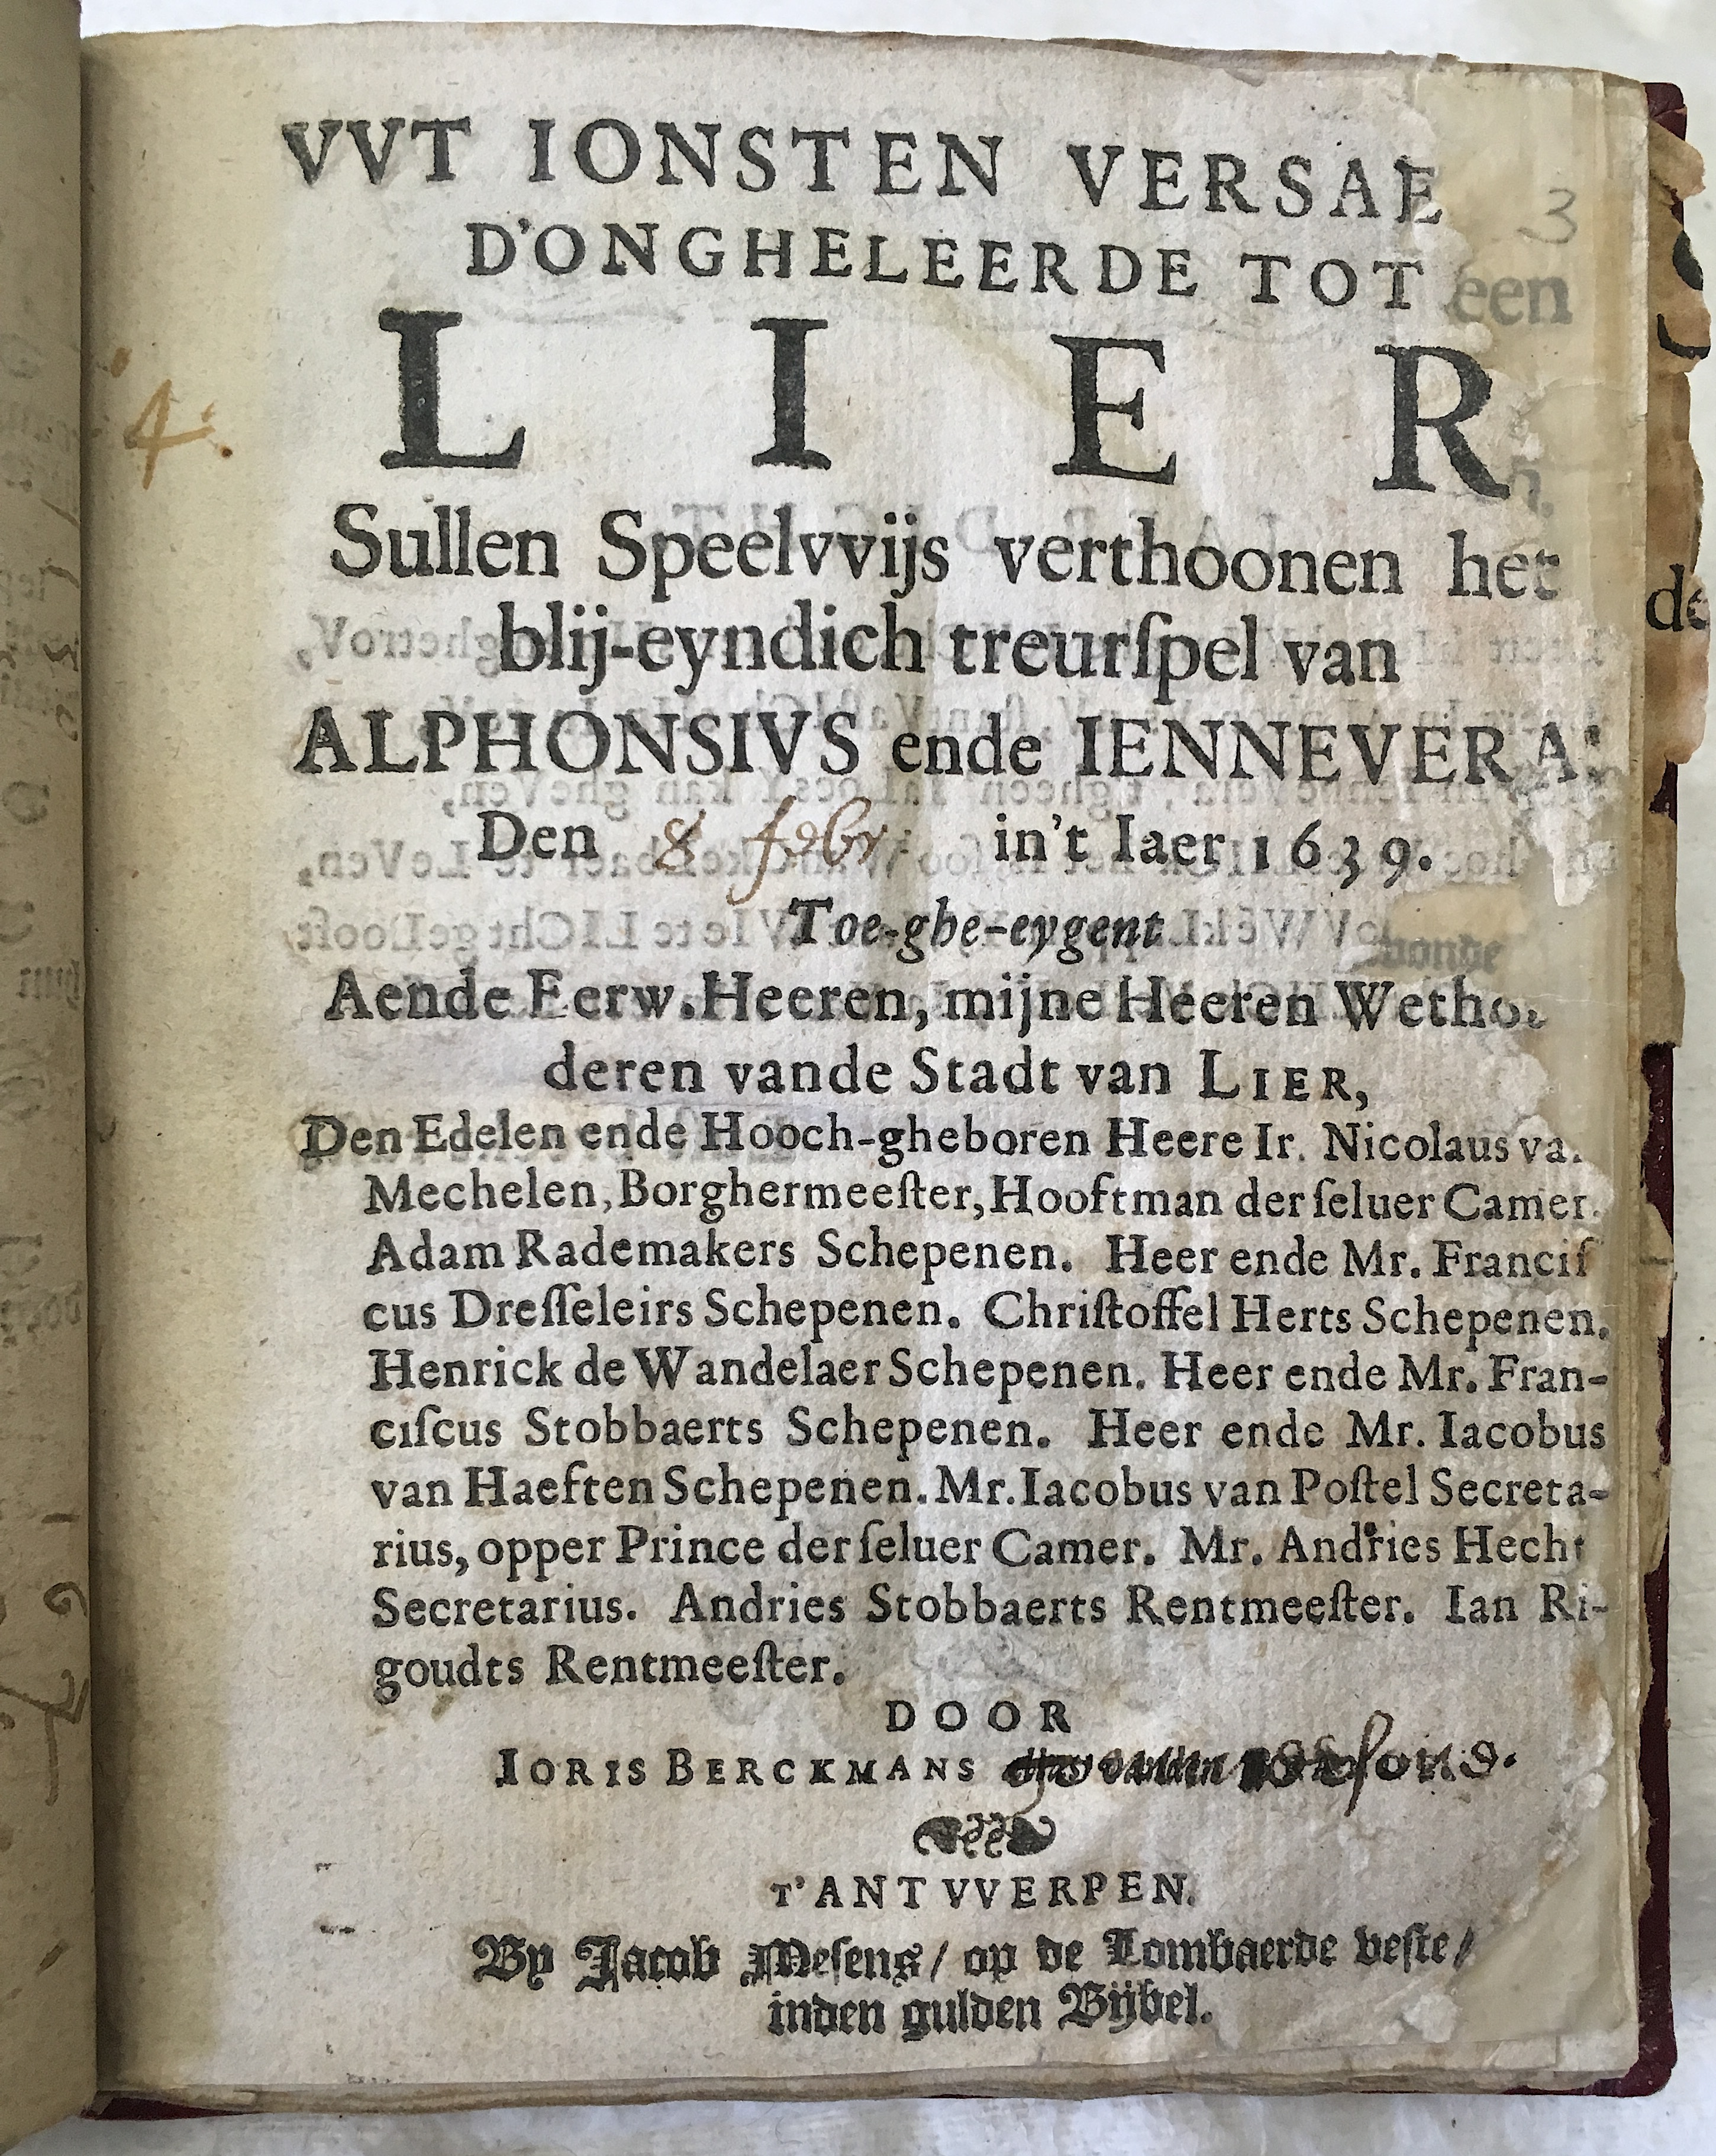 VVT IONSTEN VERSAE
3
D'ONGHELEERDE TOT
een
LIER
4.
Sullen Speelvvijs verthoonen het
blij-eyndich treurſpel van
de
ALPHONSIVS ende IENNEVERA
Den 8 febr: in't Iaer 1639.
Toe-ghe-eygent
Aende Eerw. Heeren, mijne Heeren Wethou
deren vande Stadt van LIER,
Den Edelen ende Hooch-gheboren Heere Ir. Nicolaus va
Mechelen, Borghermeeſter, Hooftman der ſeluer Camer.
Adam Rademakers Schepenen. Heer ende Mr. Franciſ
cus Dreſſeleirs Schepenen. Chriſtoffel Herts Schepenen.
Henrick de Wandelaer Schepenen. Heer ende Mr. Fran-
ciſcus Stobbaerts Schepenen. Heer ende Mr. Iacobus
van Haeften Schepenen. Mr. Iacobus van Poſtel Secreta-
rius, opper Prince der ſeluer Camer. Mr. Andries Hecht
Secretarius. Andries Stobbaerts Rentmeeſter. Ian Ri-
goudts Rentmeeſter.
DOOR
IORIS BERCKMANS
T'ANTVVERPEN.
By Jacob Meſens/ op de Lombaerde veſte/
inden gulden Bijbel.